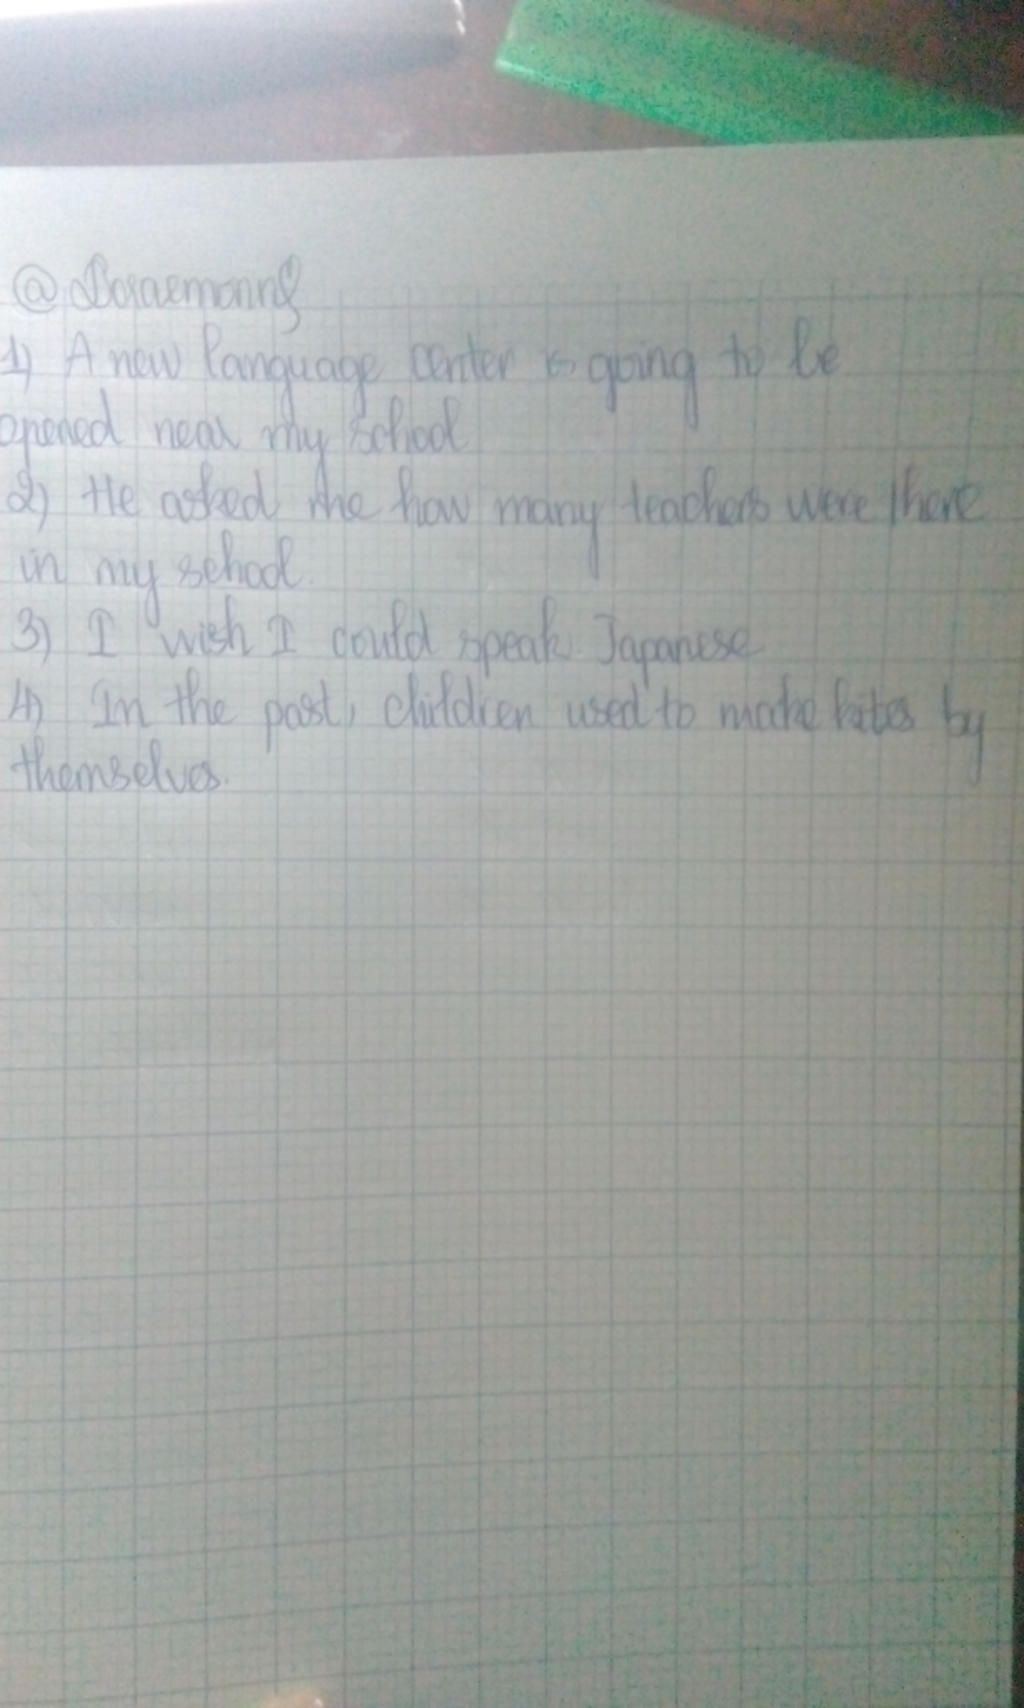 @Doraemonn
1) A new language center is going to be
opened near my school
2) He asked me how many teachers were there
in my school.
3) I wish I could speak Japanese
4) In the past, children used to make kites by
themselves.